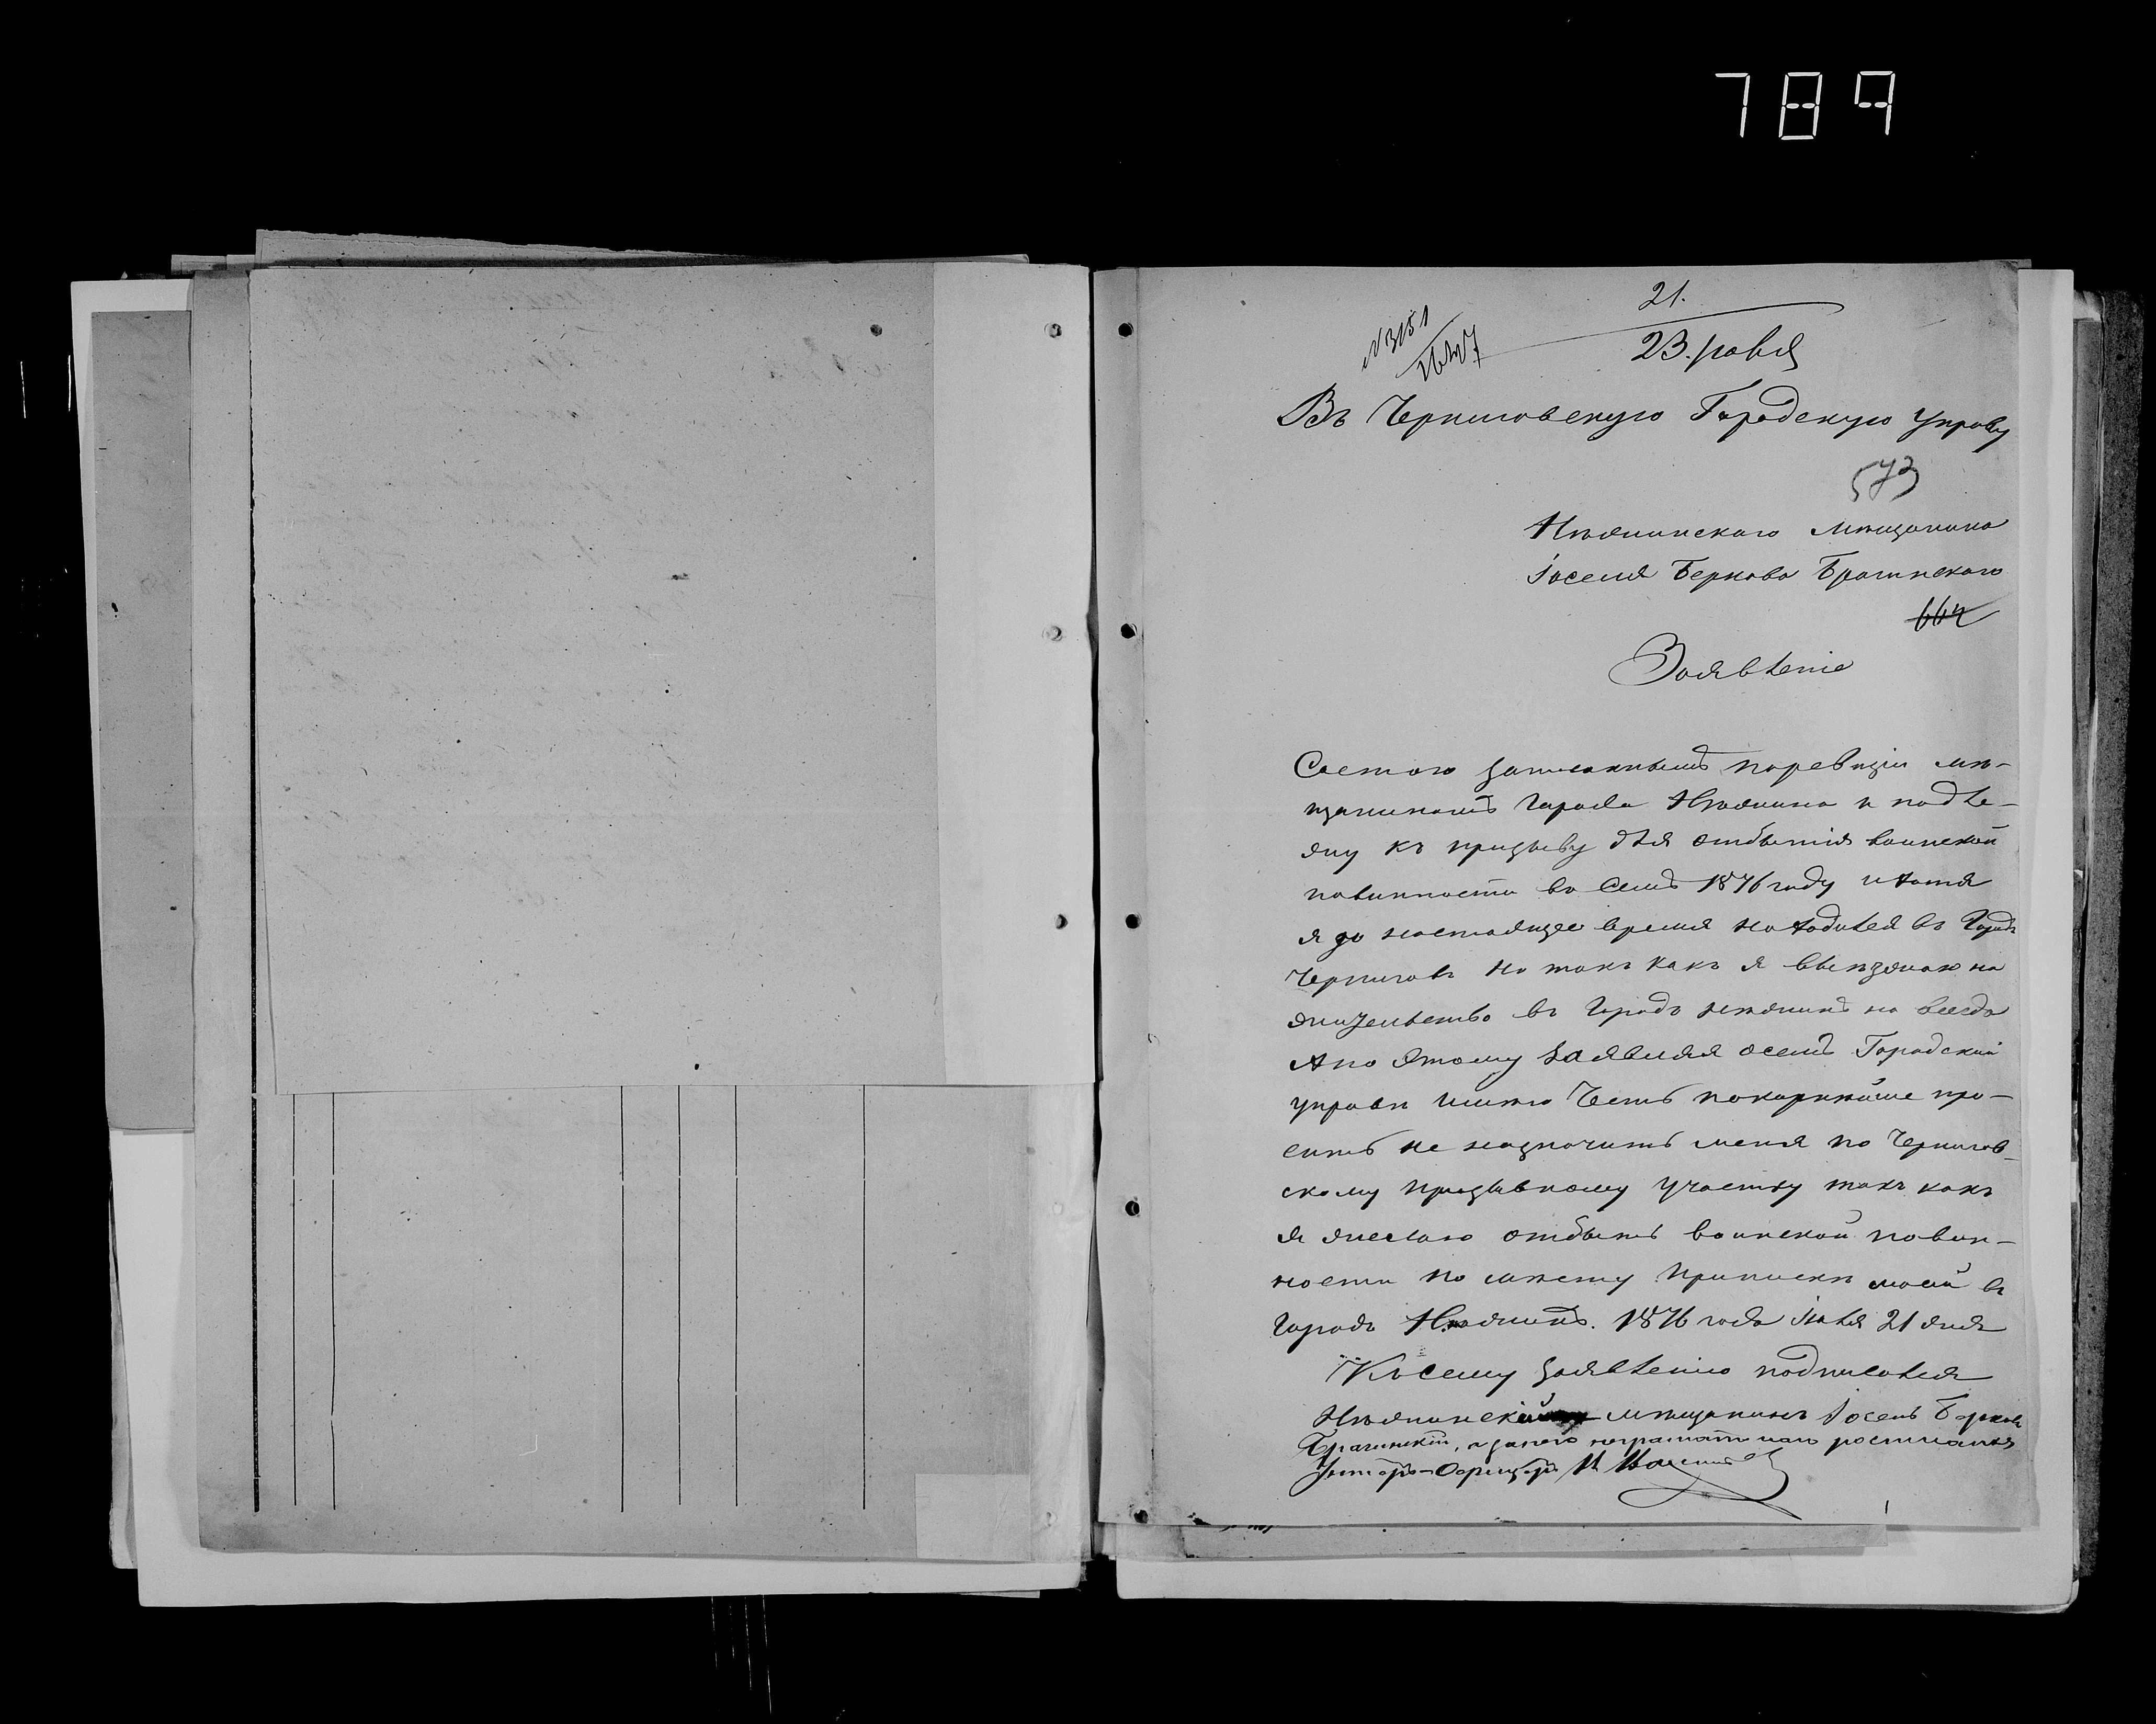 789
21.
№ 3151
23. Іюля
Въ Черниговскую Городскую Управу
573
Нѣжинскаго мѣщанина
Іоселя Беркова Брагинскаго
664
Заявленіе
Состою записаннымъ поревизіи мѣ-
щаниномъ города Нѣжина и подле-
жу къ призыву для отбытія воинской
повинности въ семъ 1876 году и хотя
я до настоящее время находился въ Городѣ
Черниговѣ но такъ какъ я выезжаю на
жительство въ Городъ нежинъ на всегда
А по этому заявляя осемъ Городской
управѣ имѣю Честь покорнѣйше про-
сить не назначить меня по Чернигов-
скому призывному участку такъ какъ
я желаю отбыть воинской повин-
ности по мѣсту приписки моей въ
городѣ Нѣжинѣ. 1876 года Іюля 21 дня
Къ сему заявленію подписался
Нѣжинскій мѣщанинъ Іосель Берковъ
Брагинскій, а занего неграмотнаго росписался
Унтеръ-Офицеръ